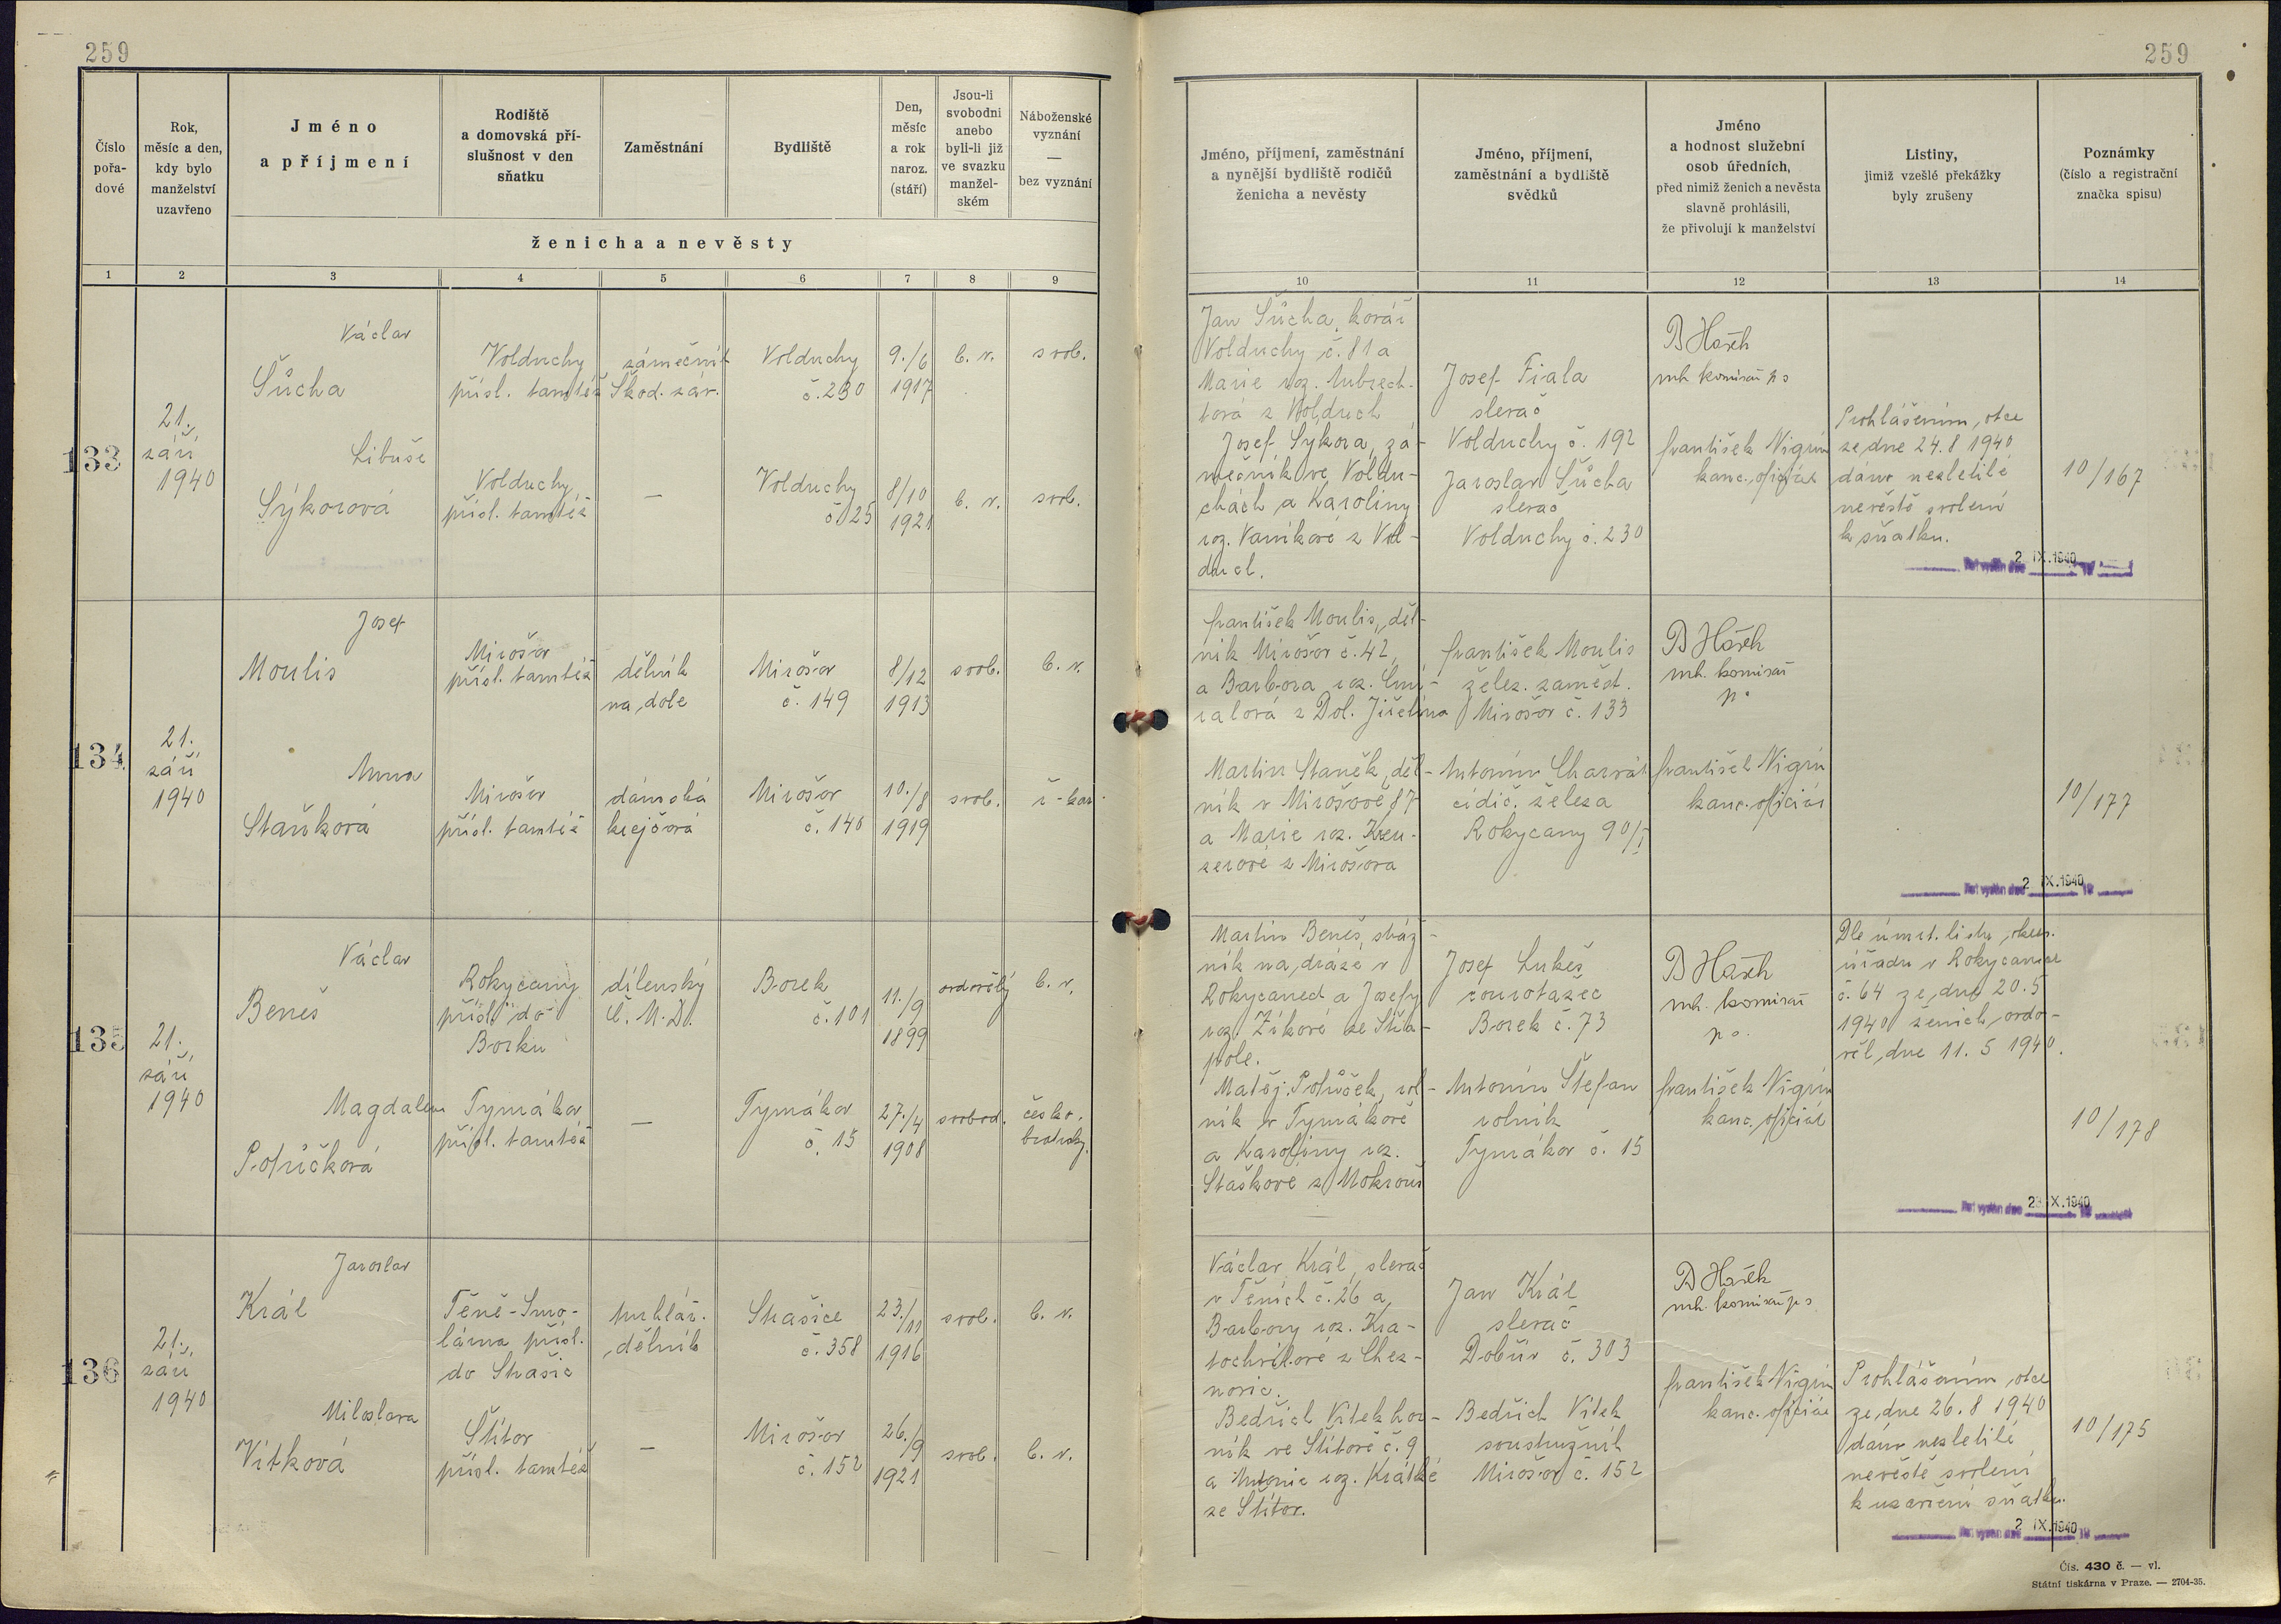 259
259
Číslo pořadové
Rok, měsíc a den, kdy bylo manželství uzavřeno
Jméno a příjmení
Rodiště a domovská příslušnost v den sňatku
Zaměstnání
Bydliště
Den, měsíc a rok naroz. (stáří)
Jsou-li svobodni anebo byli-li již ve svazku manželském
Náboženské vyznání — bez vyznání
ženicha a nevěsty
Jméno, příjmení, zaměstnání a nynější bydliště rodičů ženicha a nevěsty
Jméno, příjmení, zaměstnání a bydliště svědků
Jméno a hodnost služební osob úředních, před nimiž ženich a nevěsta slavně prohlásili, že přivolují k manželství
Listiny, jimiž vzešlé překážky byly zrušeny
Poznámky (číslo a registrační značka spisu)
1 2 3 4 5 6 7 8 9 10 11 12 13 14
133
21.
září
1940
Václav
Šůcha
Volduchy
přísl. tamtéž
zámečník
Škod. záv.
Volduchy
č. 230
9./6
1917
b. v.
svob.
Libuše
Sýkorová
Volduchy
přísl. tamtéž
—
Volduchy
č. 25
8/10
1921
b. v.
svob.
Jan Šůcha, kovář
Volduchy č. 81 a
Marie roz.
torá z Volduch
Josef Sýkora, zá-
mečník ve Voldu-
chách a Karoliny
roz. Vaníkové z Vol-
duch.
Josef Fiala
slevač
Volduchy č. 192
Jaroslav Šůcha
slevač
Volduchy č. 230
mh. komisař
František Nigrin
kanc. oficiál
Prohlášením, otce
ze dne 24.8 1940
dáno nezletilé
nevěstě svolení
k sňatku.
2 IX.1940
10/167
134
21.
září
1940
Josef
Moulis
Mirošov
přísl. tamtéž
dělník
na dole
Mirošov
č. 149
8/12
1913
svob.
b. v.
Anna
Staňková
Mirošov
přísl. tamtéž
dámská
krejčová
Mirošov
č. 140
10./8
1919
svob.
ř-kat.
František Moulis, děl-
ník Mirošov č. 42,
a Barbora roz.
ralová z Dol.
Martin Staněk, děl-
ník v Mirošově 87
a Marie roz. Kreu-
zerové z Mirošova
František Moulis
želez. zaměst.
Mirošov č. 133
Antonín Charvát
cídič. železa
Rokycany 90/I
mh. komisař
František Nigrin
kanc. oficiál
2 IX.1940
10/177
135
21.
září
1940
Václav
Beneš
Rokycany
přísl. do
Borku
dílenský
Č. M. D.
Borek
č. 101
11./9
1899
ovdovělý
b. v.
Magdalena
Potůčková
Tymákov
přísl. tamtéž
—
Tymákov
č. 15
27./4
1908
svobod.
česko.
bratrsky.
Martin Beneš, stráž-
ník na dráze v
Rokycanech a Josefy
roz. Zíkové ze
pole.
Matěj Potůček, rol-
ník v Tymákově
a Karoliny roz.
Staškové z Mokrouš
Josef Lukeš
Borek č. 73
Antonín Štefan
rolník
Tymákov č. 15
mh. komisař
František Nigrin
kanc. oficiál
Dle úmrt. listu, okres.
úřadu v Rokycanech
č. 64 ze dne 20.5
1940 ženich, ovdo-
věl dne 11. 5 1940.
23 IX.1940
10/178
136
21.
září
1940
Jaroslav
Král
Těně-Smo-
lárna přísl.
do Strašic
truhlář.
dělník
Strašice
č. 358
23./11
1916
svob.
b. v.
Miloslava
Vítková
Štítov
přísl. tamtéž
—
Mirošov
č. 152
26./9
1921
svob.
b. v.
Václav Král, slevač
v Těních č. 26 a
Barbory roz. Kra-
tochvílové z Chez-
novic.
Bedřich Vítek hor-
ník ve Štítově č. 9
a Antonie roz. Krátké
ze Štítov.
Jan Král
slevač
Dobřív č. 303
Bedřich Vítek
soustružník
Mirošov č. 152
mh. komisař
František Nigrin
kanc. oficiál
Prohlášením, otce
ze dne 26.8 1940
dáno nezletilé
nevěstě svolení
k uzavření sňatku.
2 IX.1940
10/175
Čís. 430 č. — vl.
Státní tiskárna v Praze. — 2704-35.